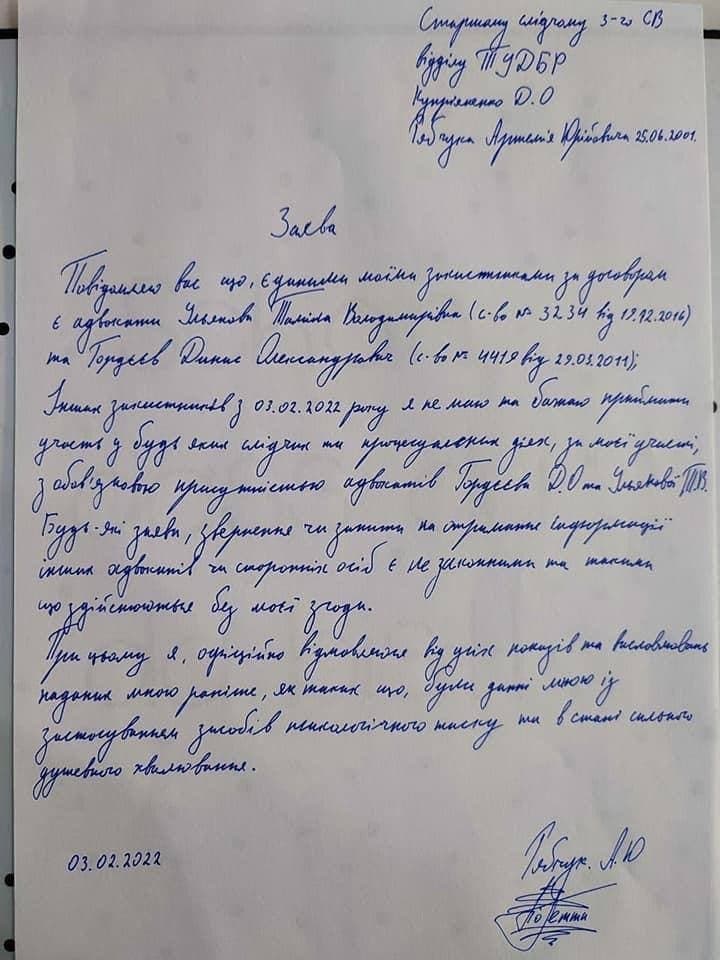 Старшому слідчому 3-го СВ
відділу ТУДБР
Купрієненко Д.О
Рябчука Артемія Юрійовича 25.06.2001.
Заява
Повідомляю вас що, єдиними моїми захистниками за договорам
є адвокати Ульякова Таміла Володимирівна (с-во № 3234 від 19.12.2016)
та Гордєєв Динис Олександрович (с-во № 4419 від 29.03.2011);
Інших захистників з 03.02.2022 року я не маю та бажаю приймати
участь у будь яких слідчих та процесуальних діях, за моєї участі,
з обов'язковою присутністью адвокатів Гордєєва Д.О та Ульякової Т.В.
Будь-які заяви, звернення чи запити на отримання інформації
інших адвокатів чи сторонніх осіб є не законними та такими
що здійснюються без моєї згоди.
При цьому я, офіційно відмовляюся від усіх показів та висловлювань
наданих мною раніше, як таких що, були данні мною із
застосуванням засобів психологічного тиску та в стані сильного
душевного хвилювання.
03.02.2022
Рябчук. А.Ю